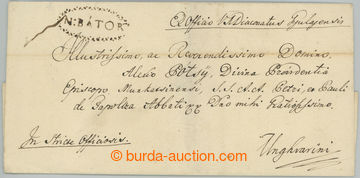 N:BÁTOR
Ex Officio V.A.Diaconatus Gyulyensis
Illustrissimo, ac Reverendissimo Domino,
Alexio Pótsy, Divina Providentia
Episcopo Munkatsiensi, S.S.A.A. Petri, et Pauli
de Tapoltza Abbati Dño mihi Gratiosissimo.
In Stricte Officiosis.
Unghvarini
burda-auction.com